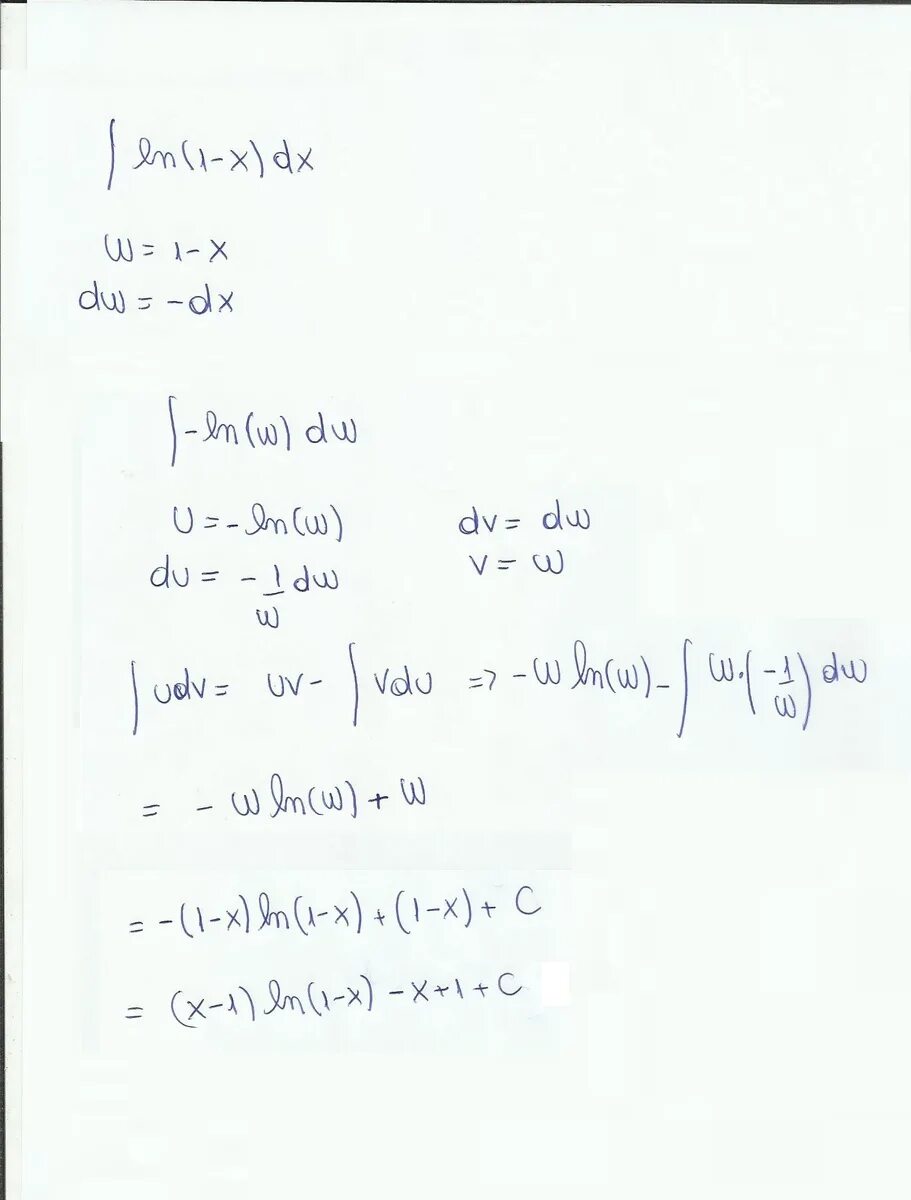 ∫ ln(1-x) dx
w = 1-x
dw = -dx
∫ -ln(w) dw
u = -ln(w) dv = dw
du = -1/w dw v = w
∫ udv = uv - ∫ vdu => -w ln(w) - ∫ w·(-1/w) dw
= -w ln(w) + w
= -(1-x) ln(1-x) + (1-x) + C
= (x-1) ln(1-x) - x + 1 + C